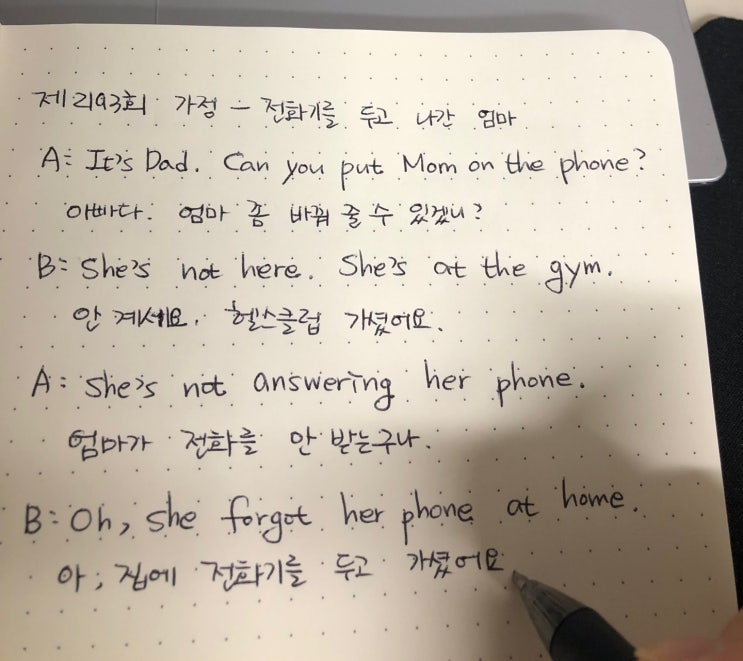 제2193회 가정 - 전화기를 두고 나간 엄마
A: It's Dad. Can you put Mom on the phone?
아빠다. 엄마 좀 바꿔 줄 수 있겠니?
B: She's not here. She's at the gym.
안 계세요. 헬스클럽 가셨어요.
A: She's not answering her phone.
엄마가 전화를 안 받는구나.
B: Oh, she forgot her phone at home.
아, 집에 전화기를 두고 가셨어요